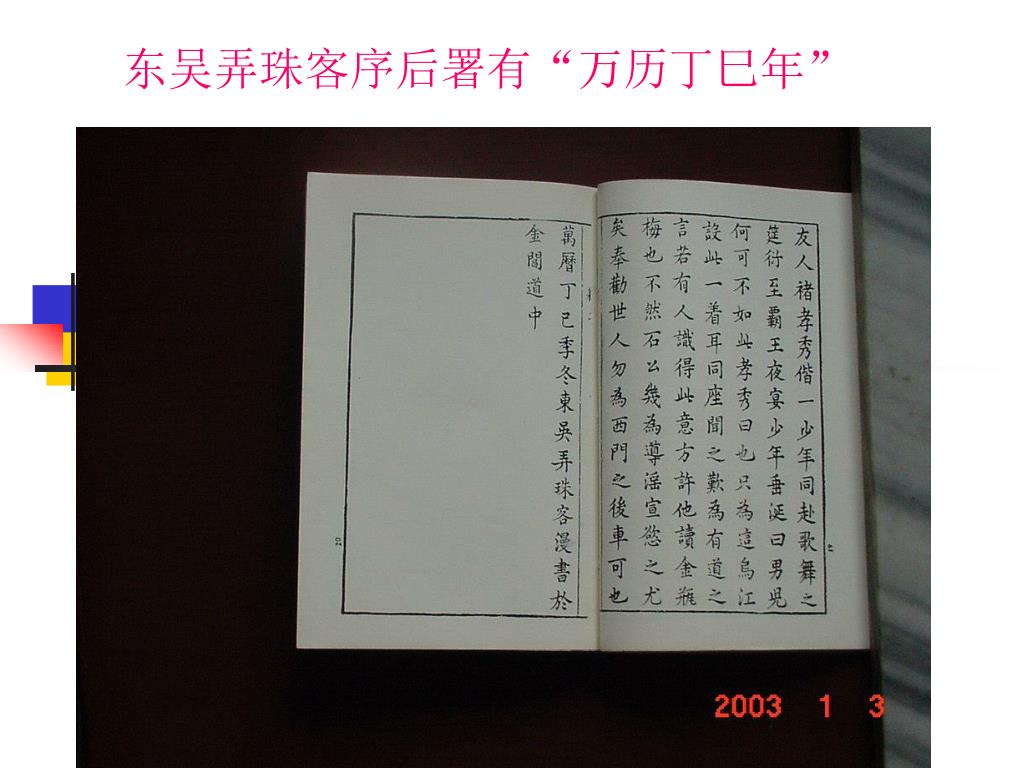 东吴弄珠客序后署有“万历丁巳年”
友人褚孝秀偕一少年同赴歌舞之
筵衍至霸王夜宴少年垂涎曰男兒
何可不如此孝秀曰也只為這烏江
設此一着耳同座聞之歎為有道之
言若有人識得此意方許他讀金瓶
梅也不然石公幾為導淫宣慾之尤
矣奉勸世人勿為西門之後車可也
萬曆丁巳季冬東吳弄珠客漫書於
金閶道中
2003 1 3